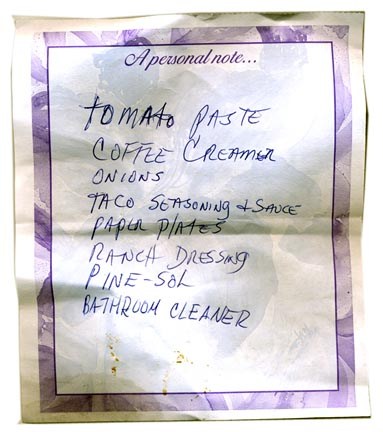 A personal note...
TOMATO PASTE
COFFEE CREAMER
ONIONS
TACO SEASONING & SAUCE
PAPER PLATES
RANCH DRESSING
PINE-SOL
BATHROOM CLEANER